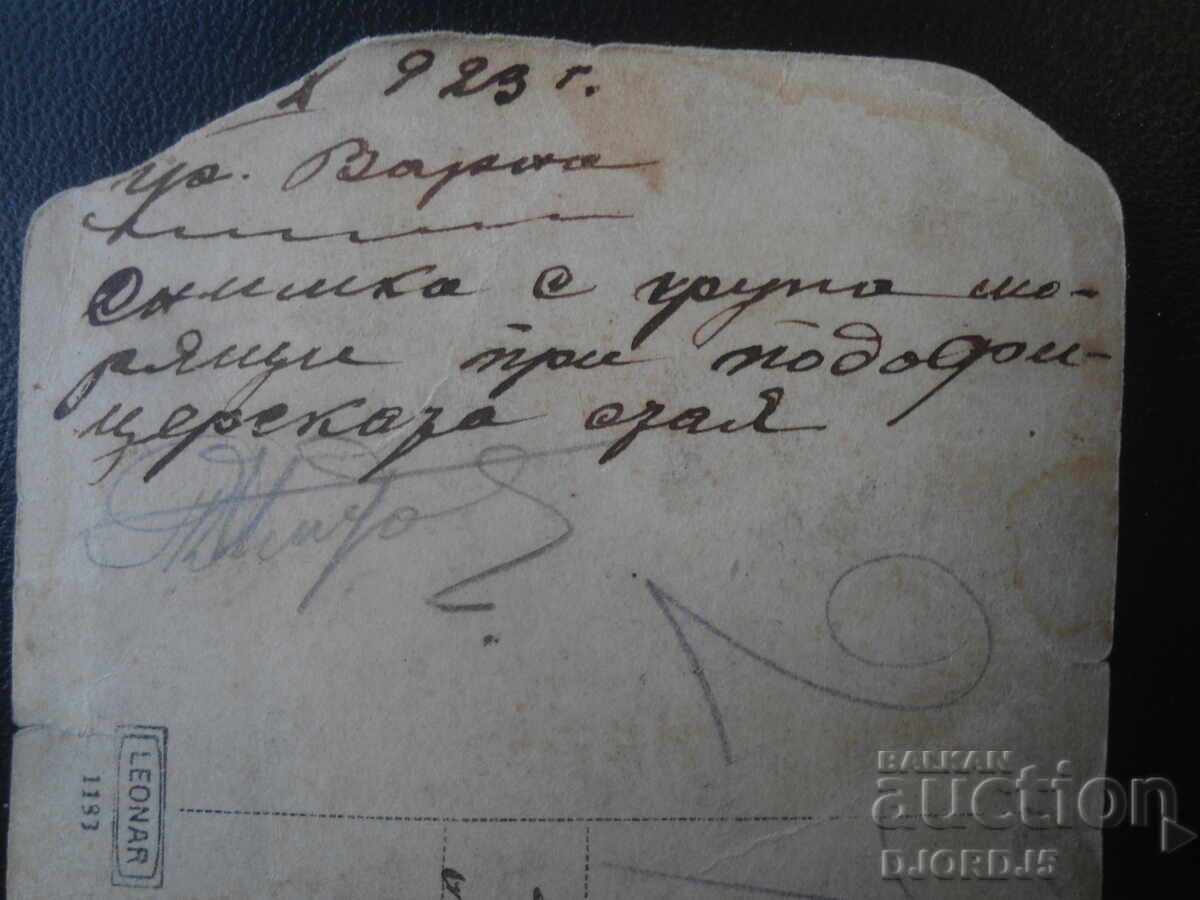 X 923 г.
гр. Варна
Снимка с група мо-
ряци при подофи-
церската стая
LEONAR
1183
BALKAN
auction
DJORDJ5